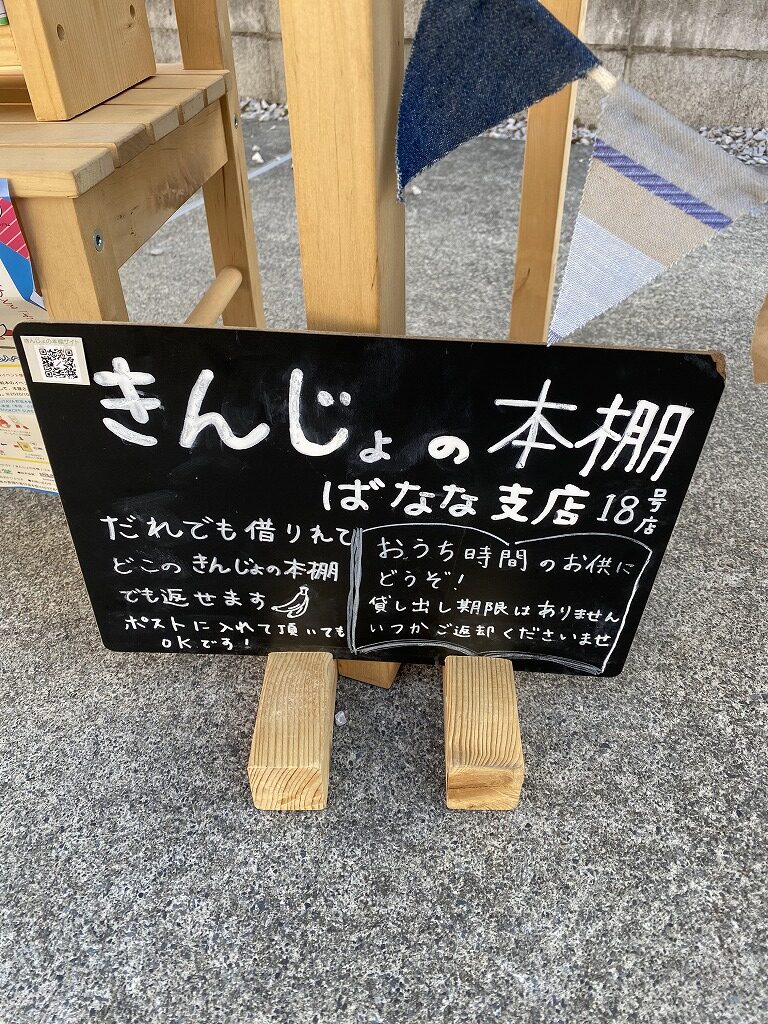 きんじょの本棚サイト
きんじょの本棚
ばなな支店 18号店
だれでも借りれて
どこのきんじょの本棚
でも返せます
ポストに入れて頂いても
OKです!
おうち時間のお供に
どうぞ!
貸し出し期限はありません
いつかご返却くださいませ